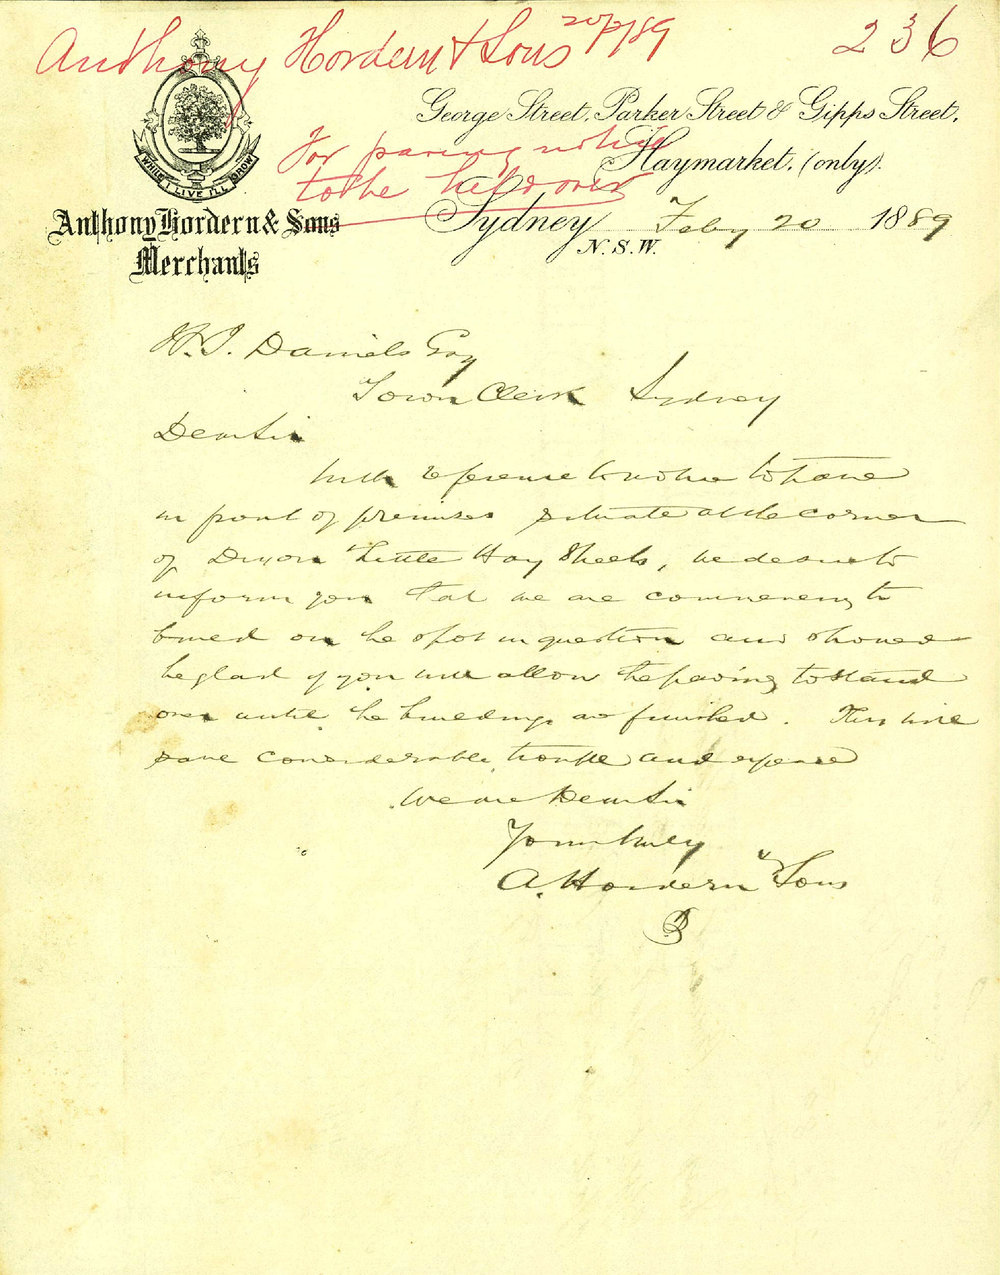 Anthony Hordern & Sons 20/2/89
236
For paving notice
to be held over
WHILE I LIVE I'LL GROW
Anthony Hordern & Sons
Merchants
George Street, Parker Street & Gipps Street,
Haymarket. (only).
Sydney Feby 20 1889
N.S.W.
H. J. Daniels Esq
Town Clerk Sydney
Dear Sir
With reference to notice to pave
in front of premises situate at the corner
of Dixon & Little Hay Streets, we desire to
inform you that we are commencing to
build on the spot in question and should
be glad if you will allow the paving to stand
over until the buildings are finished. This will
save considerable trouble and expense
We are Dear Sir
Yours truly
A. Hordern & Sons